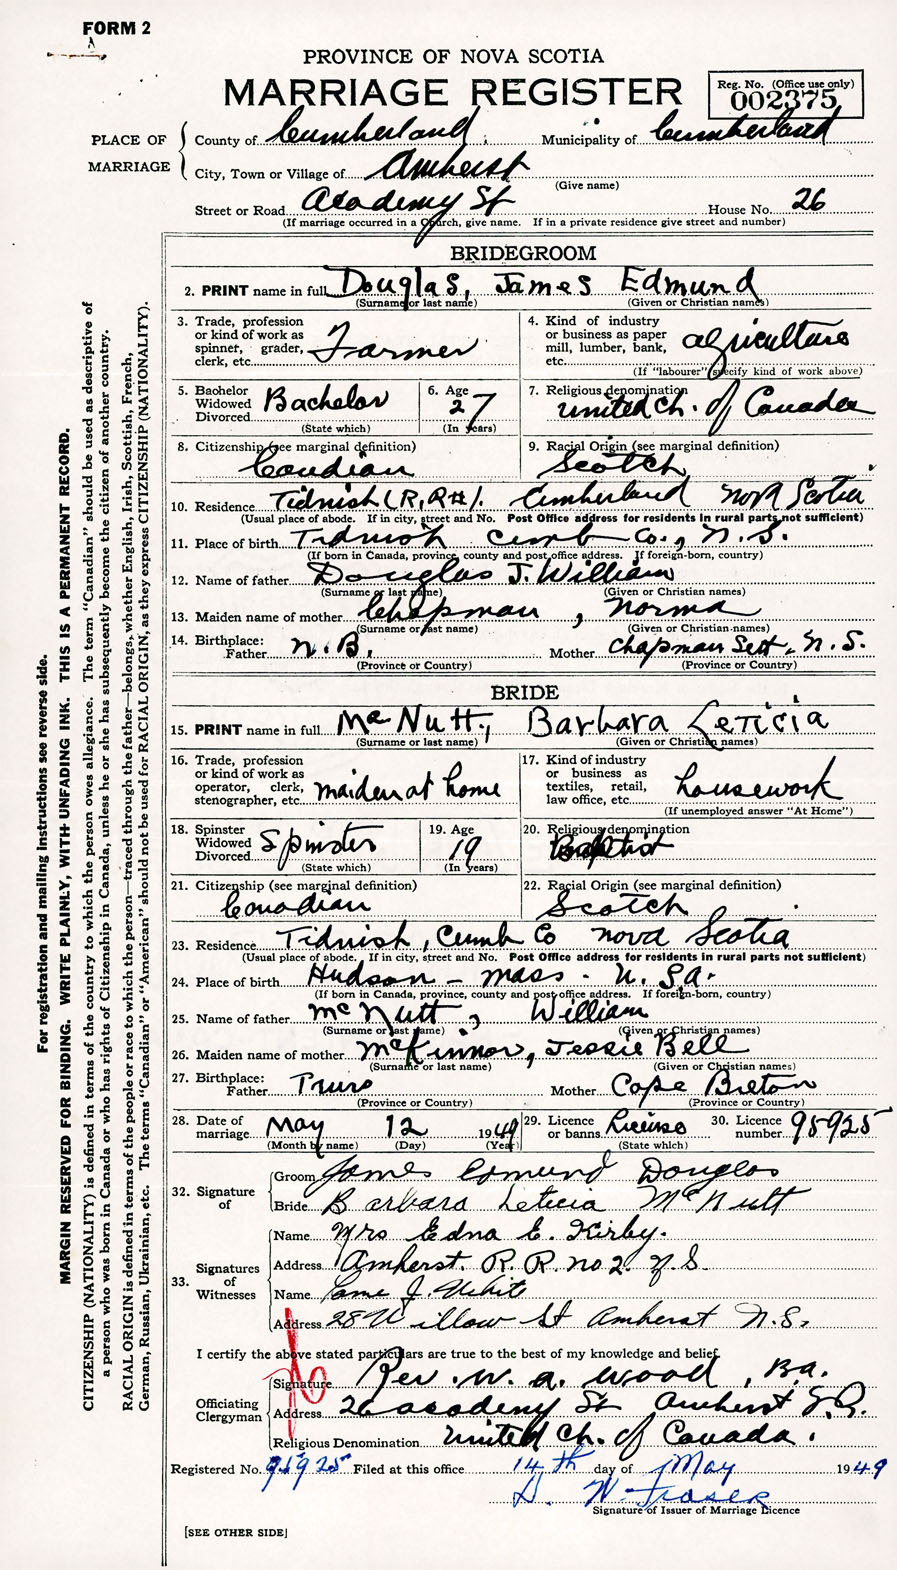 FORM 2
PROVINCE OF NOVA SCOTIA
MARRIAGE REGISTER
Reg. No. (Office use only)
002375
PLACE OF MARRIAGE
County of Cumberland Municipality of Cumberland
City, Town or Village of Amherst
(Give name)
Street or Road Academy St House No. 26
(If marriage occurred in a Church, give name. If in a private residence give street and number)
BRIDEGROOM
2. PRINT name in full Douglas, James Edmund
(Surname or last name) (Given or Christian names)
3. Trade, profession or kind of work as spinner, grader, clerk, etc. Farmer
4. Kind of industry or business as paper mill, lumber, bank, etc. agriculture
(If "labourer" specify kind of work above)
5. Bachelor Widowed Divorced Bachelor
(State which)
6. Age 27
(In years)
7. Religious denomination United Ch. of Canada
8. Citizenship (see marginal definition)
Candian
9. Racial Origin (see marginal definition)
Scotch
10. Residence Tidnish (R.R#). Cumberland Nova Scotia
(Usual place of abode. If in city, street and No. Post Office address for residents in rural parts not sufficient)
11. Place of birth Tidnish Cumb Co., N.S.
(If born in Canada, province, county and post office address. If foreign-born, country)
12. Name of father Douglas J. William
(Surname or last name) (Given or Christian names)
13. Maiden name of mother Chapman, Norma
(Surname or last name) (Given or Christian names)
14. Birthplace: Father N.B. Mother Chapman Sett, N.S.
(Province or Country) (Province or Country)
BRIDE
15. PRINT name in full McNutt, Barbara Leticia
(Surname or last name) (Given or Christian names)
16. Trade, profession or kind of work as operator, clerk, stenographer, etc. maiden at home
17. Kind of industry or business as textiles, retail, law office, etc. housework
(If unemployed answer "At Home")
18. Spinster Widowed Divorced Spinster
(State which)
19. Age 19
(In years)
20. Religious denomination
Baptist
21. Citizenship (see marginal definition)
Canadian
22. Racial Origin (see marginal definition)
Scotch
23. Residence Tidnish, Cumb Co Nova Scotia
(Usual place of abode. If in city, street and No. Post Office address for residents in rural parts not sufficient)
24. Place of birth Hudson - Mass - U.S.A.
(If born in Canada, province, county and post office address. If foreign-born, country)
25. Name of father McNutt, William
(Surname or last name) (Given or Christian names)
26. Maiden name of mother McKinnon, Jessie Bell
(Surname or last name) (Given or Christian names)
27. Birthplace: Father Truro Mother Cape Breton
(Province or Country) (Province or Country)
28. Date of marriage May 12 1949
(Month by name) (Day) (Year)
29. Licence or banns License
(State which)
30. Licence number 95925
32. Signature of
Groom James Edmund Douglas
Bride Barbara Leticia McNutt
33. Signatures of Witnesses
Name Mrs Edna E. Kirby.
Address Amherst. R.R. no 2. N.S.
Name J. White
Address 28 Willow St Amherst N.S.
I certify the above stated particulars are true to the best of my knowledge and belief.
Officiating Clergyman
Signature Rev. W. A. Wood, B.A.
Address 26 Academy St Amherst
Religious Denomination United Ch. of Canada.
Registered No. 95925 Filed at this office 14th day of May 1949
D. W. Fraser
Signature of Issuer of Marriage Licence
[SEE OTHER SIDE]
For registration and mailing instructions see reverse side.
MARGIN RESERVED FOR BINDING. WRITE PLAINLY, WITH UNFADING INK. THIS IS A PERMANENT RECORD.
CITIZENSHIP (NATIONALITY) is defined in terms of the country to which the person owes allegiance. The term "Canadian" should be used as descriptive of
a person who was born in Canada or who has rights of Citizenship in Canada, unless he or she has subsequently become the citizen of another country.
RACIAL ORIGIN is defined in terms of the people or race to which the person—traced through the father—belongs, whether English, Irish, Scottish, French,
German, Russian, Ukrainian, etc. The terms "Canadian" or "American" should not be used for RACIAL ORIGIN, as they express CITIZENSHIP (NATIONALITY).